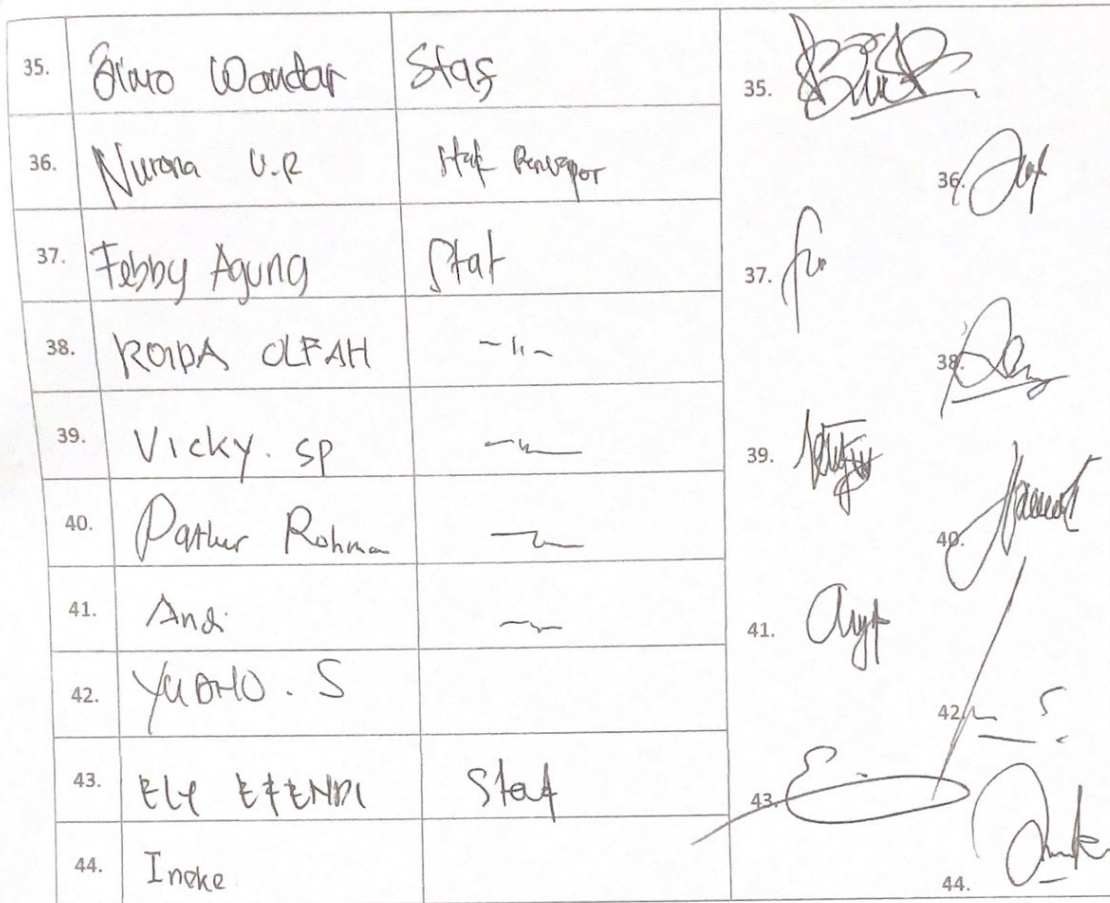 35. Wandar Staf 35.
36. Nurona U.R Staf 36.
37. Febby Agung Staf 37.
38. ROIDA OLFAH -"- 38.
39. Vicky. SP -"- 39.
40. Pathur Rohman -"- 40.
41. Andi -"- 41.
42. YUDHO. S 42.
43. ELY EFENDI Staf 43.
44. Ineke 44.